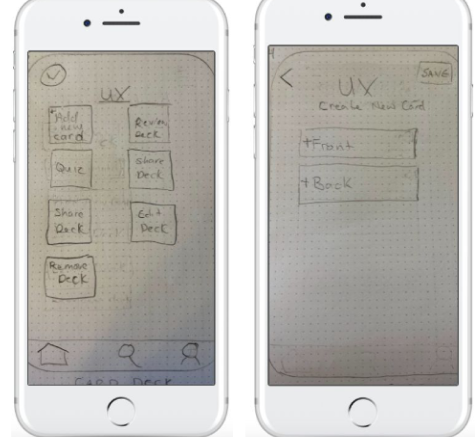 UX
+Add
new
card
Review
Deck
Quiz
Share
Deck
Share
Deck
Edit
Deck
Remove
Deck
CARD DECK
SAVE
UX
Create New Card
+Front
+Back